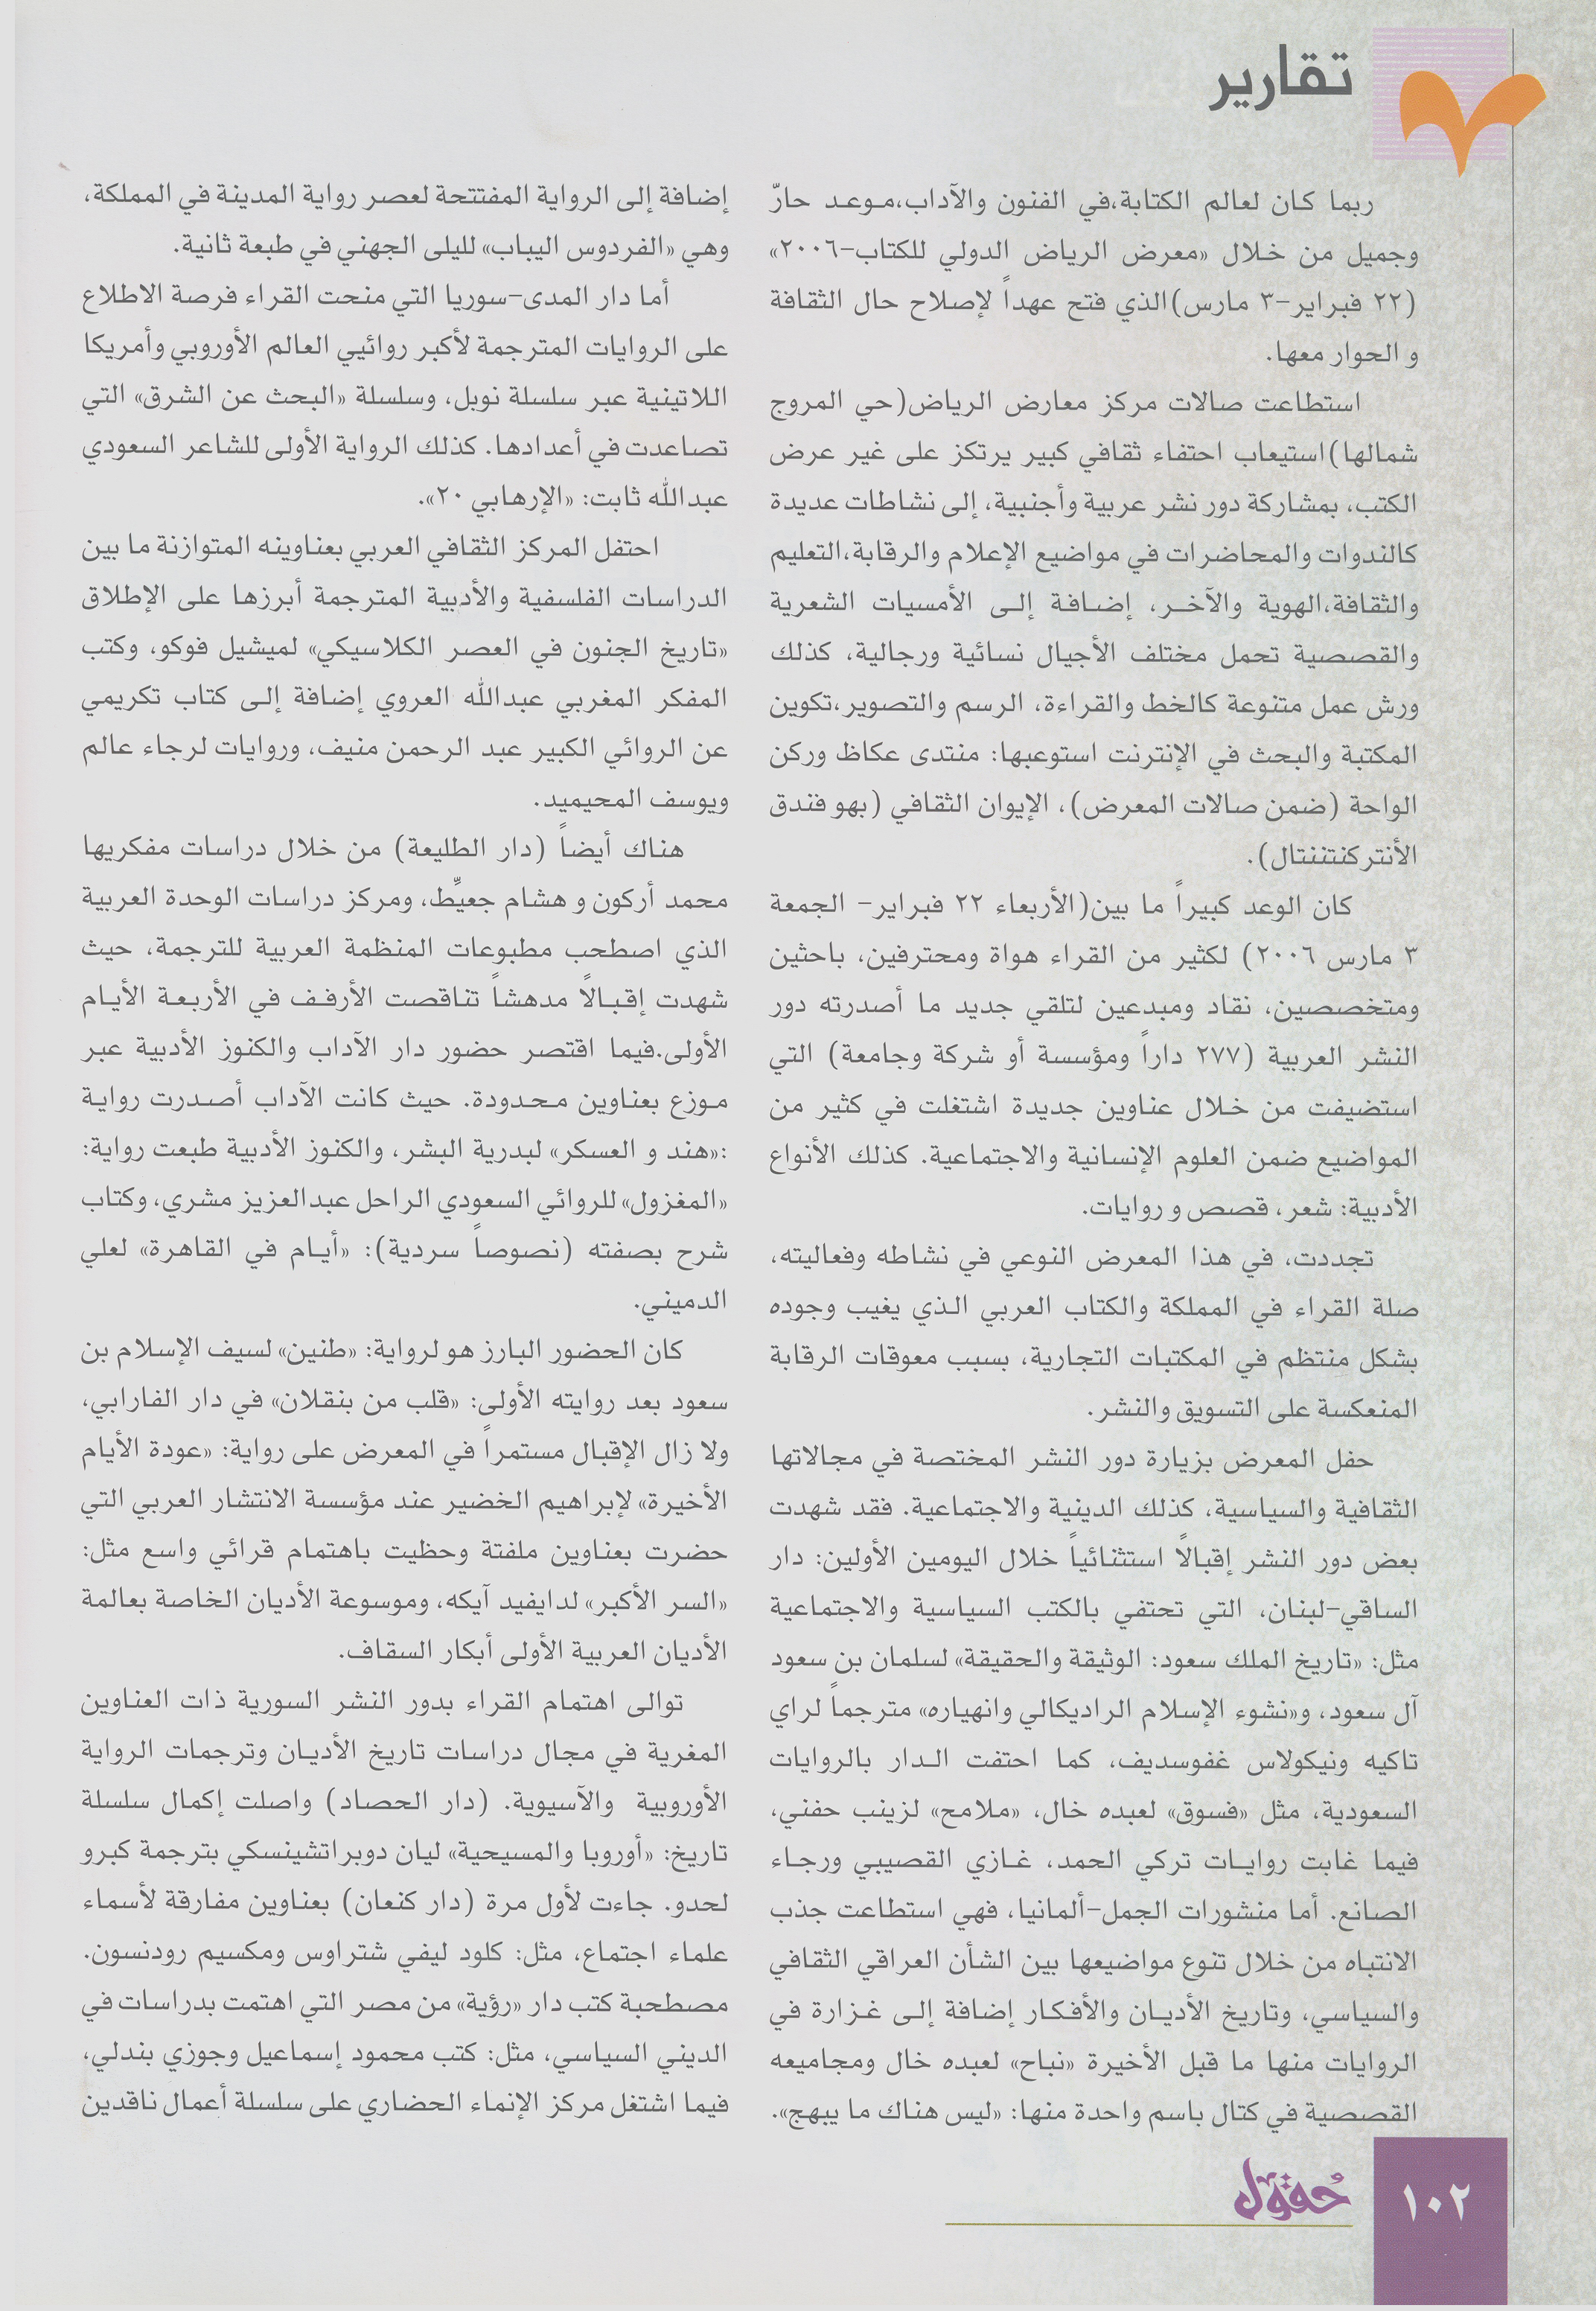 تقارير
ربما كان لعالم الكتابة،في الفنون والآداب،موعد حارّ
وجميل من خلال «معرض الرياض الدولي للكتاب-٢٠٠٦»
(٢٢ فبراير-٣ مارس)الذي فتح عهداً لإصلاح حال الثقافة
و الحوار معها.
استطاعت صالات مركز معارض الرياض(حي المروج
شمالها)استيعاب احتفاء ثقافي كبير يرتكز على غير عرض
الكتب، بمشاركة دور نشر عربية وأجنبية، إلى نشاطات عديدة
كالندوات والمحاضرات في مواضيع الإعلام والرقابة،التعليم
والثقافة،الهوية والآخر، إضافة إلى الأمسيات الشعرية
والقصصية تحمل مختلف الأجيال نسائية ورجالية، كذلك
ورش عمل متنوعة كالخط والقراءة، الرسم والتصوير،تكوين
المكتبة والبحث في الإنترنت استوعبها: منتدى عكاظ وركن
الواحة (ضمن صالات المعرض)، الإيوان الثقافي (بهو فندق
الأنتركنتننتال).
كان الوعد كبيراً ما بين(الأربعاء ٢٢ فبراير- الجمعة
٣ مارس ٢٠٠٦) لكثير من القراء هواة ومحترفين، باحثين
ومتخصصين، نقاد ومبدعين لتلقي جديد ما أصدرته دور
النشر العربية (٢٧٧ داراً ومؤسسة أو شركة وجامعة) التي
استضيفت من خلال عناوين جديدة اشتغلت في كثير من
المواضيع ضمن العلوم الإنسانية والاجتماعية. كذلك الأنواع
الأدبية: شعر، قصص و روايات.
تجددت، في هذا المعرض النوعي في نشاطه وفعاليته،
صلة القراء في المملكة والكتاب العربي الذي يغيب وجوده
بشكل منتظم في المكتبات التجارية، بسبب معوقات الرقابة
المنعكسة على التسويق والنشر.
حفل المعرض بزيارة دور النشر المختصة في مجالاتها
الثقافية والسياسية، كذلك الدينية والاجتماعية. فقد شهدت
بعض دور النشر إقبالاً استثنائياً خلال اليومين الأولين: دار
الساقي-لبنان، التي تحتفي بالكتب السياسية والاجتماعية
مثل: «تاريخ الملك سعود: الوثيقة والحقيقة» لسلمان بن سعود
آل سعود، و«نشوء الإسلام الراديكالي وانهياره» مترجماً لراي
تاكيه ونيكولاس غفوسديف، كما احتفت الدار بالروايات
السعودية، مثل «فسوق» لعبده خال، «ملامح» لزينب حفني،
فيما غابت روايات تركي الحمد، غازي القصيبي ورجاء
الصانع. أما منشورات الجمل-ألمانيا، فهي استطاعت جذب
الانتباه من خلال تنوع مواضيعها بين الشأن العراقي الثقافي
والسياسي، وتاريخ الأديان والأفكار إضافة إلى غزارة في
الروايات منها ما قبل الأخيرة «نباح» لعبده خال ومجاميعه
القصصية في كتال باسم واحدة منها: «ليس هناك ما يبهج».
إضافة إلى الرواية المفتتحة لعصر رواية المدينة في المملكة،
وهي «الفردوس اليباب» لليلى الجهني في طبعة ثانية.
أما دار المدى-سوريا التي منحت القراء فرصة الاطلاع
على الروايات المترجمة لأكبر روائيي العالم الأوروبي وأمريكا
اللاتينية عبر سلسلة نوبل، وسلسلة «البحث عن الشرق» التي
تصاعدت في أعدادها. كذلك الرواية الأولى للشاعر السعودي
عبدالله ثابت: «الإرهابي ٢٠».
احتفل المركز الثقافي العربي بعناوينه المتوازنة ما بين
الدراسات الفلسفية والأدبية المترجمة أبرزها على الإطلاق
«تاريخ الجنون في العصر الكلاسيكي» لميشيل فوكو، وكتب
المفكر المغربي عبدالله العروي إضافة إلى كتاب تكريمي
عن الروائي الكبير عبد الرحمن منيف، وروايات لرجاء عالم
ويوسف المحيميد.
هناك أيضاً (دار الطليعة) من خلال دراسات مفكريها
محمد أركون و هشام جعيِّط، ومركز دراسات الوحدة العربية
الذي اصطحب مطبوعات المنظمة العربية للترجمة، حيث
شهدت إقبالاً مدهشاً تناقصت الأرفف في الأربعة الأيام
الأولى.فيما اقتصر حضور دار الآداب والكنوز الأدبية عبر
موزع بعناوين محدودة. حيث كانت الآداب أصدرت رواية
:«هند و العسكر» لبدرية البشر، والكنوز الأدبية طبعت رواية:
«المغزول» للروائي السعودي الراحل عبدالعزيز مشري، وكتاب
شرح بصفته (نصوصاً سردية): «أيام في القاهرة» لعلي
الدميني.
كان الحضور البارز هو لرواية: «طنين» لسيف الإسلام بن
سعود بعد روايته الأولى: «قلب من بنقلان» في دار الفارابي،
ولا زال الإقبال مستمراً في المعرض على رواية: «عودة الأيام
الأخيرة» لإبراهيم الخضير عند مؤسسة الانتشار العربي التي
حضرت بعناوين ملفتة وحظيت باهتمام قرائي واسع مثل:
«السر الأكبر» لدايفيد آيكه، وموسوعة الأديان الخاصة بعالمة
الأديان العربية الأولى أبكار السقاف.
توالى اهتمام القراء بدور النشر السورية ذات العناوين
المغرية في مجال دراسات تاريخ الأديان وترجمات الرواية
الأوروبية والآسيوية. (دار الحصاد) واصلت إكمال سلسلة
تاريخ: «أوروبا والمسيحية» ليان دوبراتشينسكي بترجمة كبرو
لحدو. جاءت لأول مرة (دار كنعان) بعناوين مفارقة لأسماء
علماء اجتماع، مثل: كلود ليفي شتراوس ومكسيم رودنسون.
مصطحبة كتب دار «رؤية» من مصر التي اهتمت بدراسات في
الديني السياسي، مثل: كتب محمود إسماعيل وجوزي بندلي،
فيما اشتغل مركز الإنماء الحضاري على سلسلة أعمال ناقدين
حُقول
١٠٢